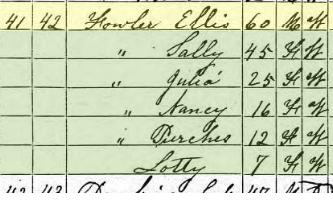 41 42 Fowler Ellis 60 M W
" Sally 45 F W
" Julia 25 F W
" Nancy 16 F W
" Durches 12 F W
Lotty 7 F W
42 43